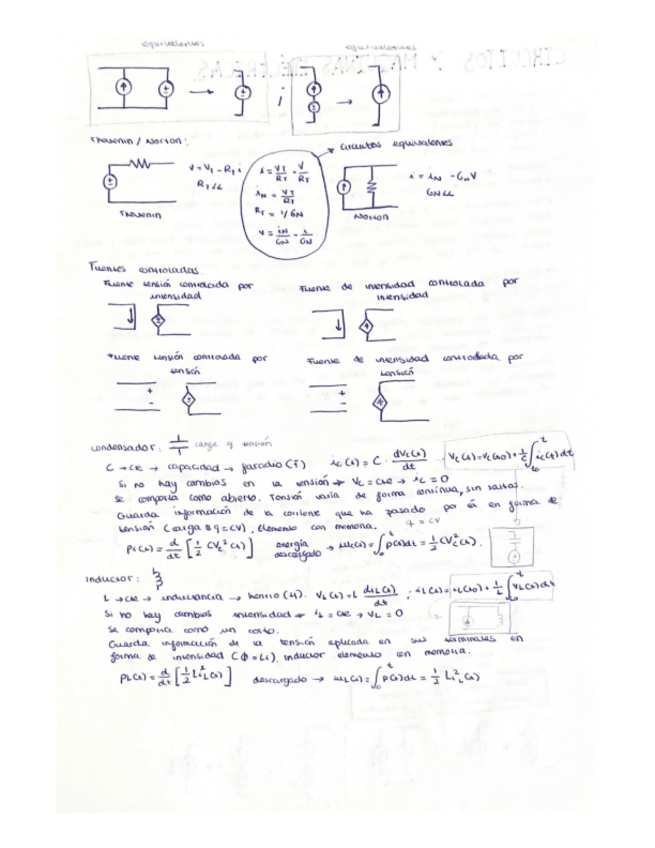 equivalentes
equivalentes
CIRCUITOS Y MÁQUINAS ELÉCTRICAS.
i
Thevenin / Norton:
Circuitos equivalentes
V = V_T - R_T i
i = V_T/R_T - V/R_T
i_N = V_T/R_T
R_T = 1/G_N
V = i_N/G_N - i/G_N
i = i_N - G_N V
Thevenin
Norton
Fuentes controladas.
Fuente tensión controlada por intensidad
Fuente de intensidad controlada por intensidad
Fuente tensión controlada por tensión
Fuente de intensidad controlada por tensión
condensador: carga y tensión
C → cte → capacidad → faradio (F) i_c(t) = C · dV_c(t)/dt
V_c(t) = V_c(t_0) + 1/C ∫_{t_0}^{t} i_c(t) dt
Si no hay cambios en la tensión → V_c = cte → i_c = 0
Se comporta como abierto. Tensión varía de forma continua, sin saltos.
Guarda información de la corriente que ha pasado por él en forma de
tensión (carga q = CV), elemento con memoria.
q = CV
P_c(t) = d/dt [1/2 C V_c²(t)] energía descargado → w_c(t) = ∫_0^t p(t) dt = 1/2 C V_c²(t).
Inductor:
L → cte → inductancia → henrio (H). V_L(t) = L di_L(t)/dt ; i_L(t) = i_L(t_0) + 1/L ∫_{t_0}^{t} V_L(t) dt
Si no hay cambios intensidad → i_L = cte → V_L = 0
Se comporta como un corto.
Guarda información de la tensión aplicada en sus terminales en
forma de intensidad (Φ = Li), inductor elemento con memoria.
P_L(t) = d/dt [1/2 L i_L²(t)] descargado → w_L(t) = ∫_0^t p(t) dt = 1/2 L i_L²(t)